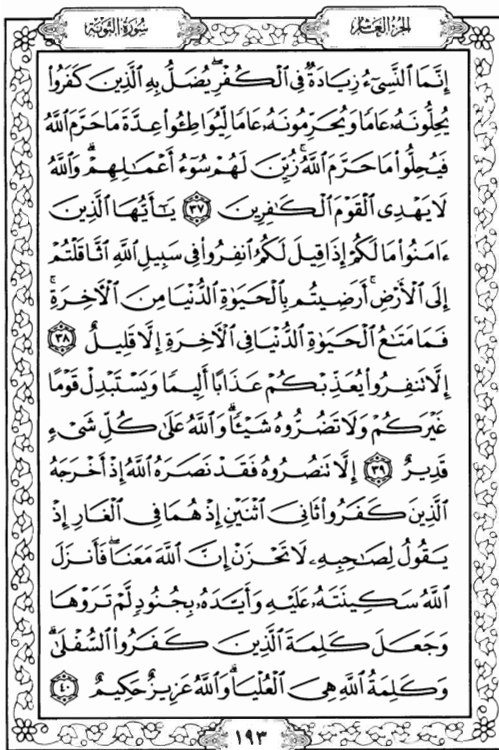 سُورَةُ التَّوبَةِ
الجُزءُ العَاشِرُ
إِنَّمَا ٱلنَّسِىٓءُ زِيَادَةٌ فِى ٱلْكُفْرِ ۖ يُضَلُّ بِهِ ٱلَّذِينَ كَفَرُوا۟
يُحِلُّونَهُۥ عَامًا وَيُحَرِّمُونَهُۥ عَامًا لِّيُوَاطِـُٔوا۟ عِدَّةَ مَا حَرَّمَ ٱللَّهُ
فَيُحِلُّوا۟ مَا حَرَّمَ ٱللَّهُ ۚ زُيِّنَ لَهُمْ سُوٓءُ أَعْمَـٰلِهِمْ ۗ وَٱللَّهُ
لَا يَهْدِى ٱلْقَوْمَ ٱلْكَـٰفِرِينَ ٣٧ يَـٰٓأَيُّهَا ٱلَّذِينَ
ءَامَنُوا۟ مَا لَكُمْ إِذَا قِيلَ لَكُمُ ٱنفِرُوا۟ فِى سَبِيلِ ٱللَّهِ ٱثَّاقَلْتُمْ
إِلَى ٱلْأَرْضِ ۚ أَرَضِيتُم بِٱلْحَيَوٰةِ ٱلدُّنْيَا مِنَ ٱلْـَٔاخِرَةِ ۚ
فَمَا مَتَـٰعُ ٱلْحَيَوٰةِ ٱلدُّنْيَا فِى ٱلْـَٔاخِرَةِ إِلَّا قَلِيلٌ ٣٨
إِلَّا تَنفِرُوا۟ يُعَذِّبْكُمْ عَذَابًا أَلِيمًا وَيَسْتَبْدِلْ قَوْمًا
غَيْرَكُمْ وَلَا تَضُرُّوهُ شَيْـًٔا ۗ وَٱللَّهُ عَلَىٰ كُلِّ شَىْءٍ
قَدِيرٌ ٣٩ إِلَّا تَنصُرُوهُ فَقَدْ نَصَرَهُ ٱللَّهُ إِذْ أَخْرَجَهُ
ٱلَّذِينَ كَفَرُوا۟ ثَانِىَ ٱثْنَيْنِ إِذْ هُمَا فِى ٱلْغَارِ إِذْ
يَقُولُ لِصَـٰحِبِهِۦ لَا تَحْزَنْ إِنَّ ٱللَّهَ مَعَنَا ۖ فَأَنزَلَ
ٱللَّهُ سَكِينَتَهُۥ عَلَيْهِ وَأَيَّدَهُۥ بِجُنُودٍ لَّمْ تَرَوْهَا
وَجَعَلَ كَلِمَةَ ٱلَّذِينَ كَفَرُوا۟ ٱلسُّفْلَىٰ ۗ
وَكَلِمَةُ ٱللَّهِ هِىَ ٱلْعُلْيَا ۗ وَٱللَّهُ عَزِيزٌ حَكِيمٌ ٤٠
١٩٣